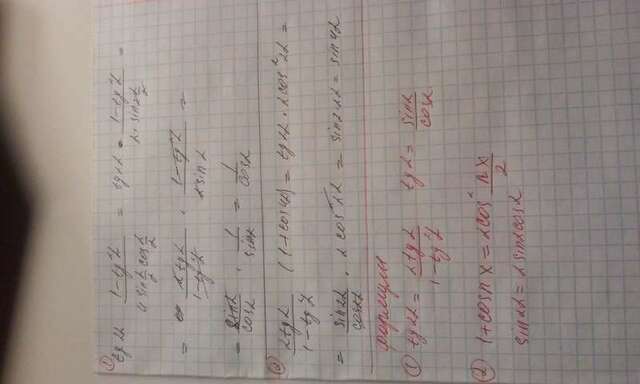 ① tg 2α (1-tg²α)/(4 sin α/2 cos α/2) = tg 2α · (1-tg²α)/(2·sin 2 α/2) =
= (2tgα)/(1-tg²α) · (1-tg²α)/(2 sin α) =
= sinα/cosα · 1/sinα = 1/cosα
② (2tgα)/(1-tg²α) (1+cos4α) = tg2α · 2cos²2α =
= sin2α/cos2α · 2cos²2α = sin2·2α = sin4α
формулы
① tg2α = (2tgα)/(1-tg²α) tgα = sinα/cosα
② 1+cosnx = 2cos² nx/2
sin2α = 2sinαcosα